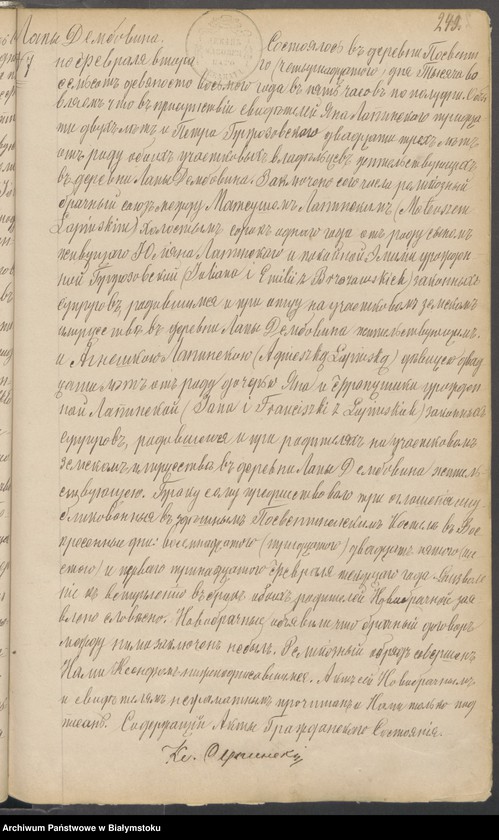 249.
Лапы Дембовина.
Состоялось въ деревни Посвентн
по февраля втора го (четырнадцатого) дня тысяча во
семьсотъ девяносто восьмого года въ пять часовъ по полудни. Объя
вляемъ что въ присутствіи свидѣтелей Яна Лапинскаго тридца
ти двухъ лѣтъ и Петра двадцати трехъ лѣтъ
отъ роду обоихъ участковыхъ владѣльцевъ жительствующихъ
въ деревни Лапы Дембовина. Заключено сего числа религіозный
брачный союзъ между Матеушемъ Лапинскимъ (Mateuszem
Łapińskim) холостымъ сорокъ одного года отъ роду сыномъ
живущаго Юліяна Лапинскаго и покойной Эмиліи урожден
ной Бржозовской (Juliana i Emilii z Brzozowskich) законныхъ
супруговъ, родившимся и при отцу на участковомъ земскомъ
имуществѣ въ деревни Лапы Дембовина жительствующимъ.
и Агнешкою Лапинскою (Agnieszką Łapińską) дѣвицею двад
цати лѣтъ отъ роду дочерью Яна и Францишки урожден
ной Лапинской (Jana i Franciszki z Łapińskich) законныхъ
супруговъ, родившеюся и при родителяхъ на участковомъ
земскомъ имуществѣ въ деревни Лапы Дембовина житель
ствующею. Браку сему предшествовало три оглашенія опу
бликованныя въ здѣшнемъ Посвентненскомъ Костелѣ въ Вос
кресенные дни: восемнадцатого (тридцатого) двадцать пятого (ше
стого) и перваго тринадцатого Февраля текущаго года. Позволе
ніе къ вступленію въ бракъ обоихъ родителей Новобрачной зая
влено словесно. Новобрачные объявили что брачный договоръ
между ними заключенъ небылъ. Религіозный обрядъ совершенъ
Нами Ксендзомъ нижеподписавшимся. Актъ сей Новобрачнымъ
и свидѣтелямъ неграматнымъ прочитанъ и Нами только под
писанъ. Содержащій Акты Гражданскаго Состоянія.
Кс.
Archiwum Państwowe w Białymstoku